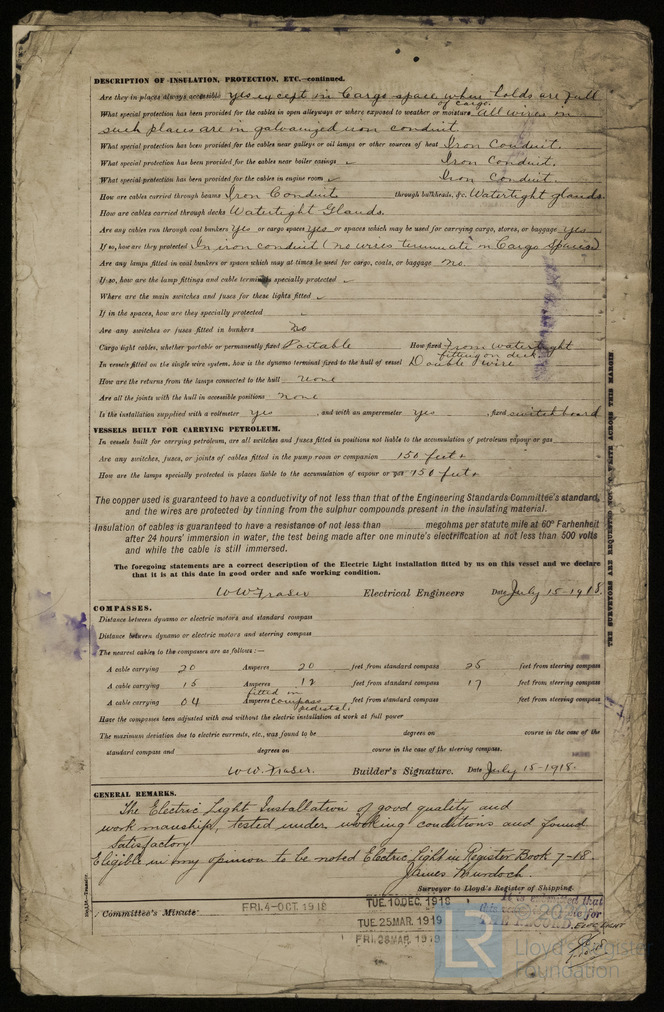 DESCRIPTION OF INSULATION, PROTECTION, ETC.—continued.
Are they in places always accessible Yes except in Cargo space where holds are full of cargo.
What special protection has been provided for the cables in open alleyways or where exposed to weather or moisture All wires in
such places are in galvanized iron conduit.
What special protection has been provided for the cables near galleys or oil lamps or other sources of heat Iron Conduit.
What special protection has been provided for the cables near boiler casings ✓ Iron Conduit.
What special protection has been provided for the cables in engine room ✓ Iron Conduit.
How are cables carried through beams Iron Conduit through bulkheads, &c. Watertight glands
How are cables carried through decks Watertight Glands.
Are any cables run through coal bunkers Yes or cargo spaces Yes or spaces which may be used for carrying cargo, stores, or baggage Yes
If so, how are they protected In iron conduit (no wires terminate in Cargo spaces)
Are any lamps fitted in coal bunkers or spaces which may at times be used for cargo, coals, or baggage No.
If so, how are the lamp fittings and cable terminals specially protected ✓
Where are the main switches and fuses for these lights fitted ✓
If in the spaces, how are they specially protected
Are any switches or fuses fitted in bunkers No
Cargo light cables, whether portable or permanently fixed Portable How fixed From watertight fitting on deck
In vessels fitted on the single wire system, how is the dynamo terminal fixed to the hull of vessel Double wire
How are the returns from the lamps connected to the hull none
Are all the joints with the hull in accessible positions none
Is the installation supplied with a voltmeter yes , and with an amperemeter yes , fixed switchboard
VESSELS BUILT FOR CARRYING PETROLEUM.
In vessels built for carrying petroleum, are all switches and fuses fitted in positions not liable to the accumulation of petroleum vapour or gas
Are any switches, fuses, or joints of cables fitted in the pump room or companion 150 feet
How are the lamps specially protected in places liable to the accumulation of vapour or gas 150 feet
The copper used is guaranteed to have a conductivity of not less than that of the Engineering Standards Committee's standard,
and the wires are protected by tinning from the sulphur compounds present in the insulating material.
Insulation of cables is guaranteed to have a resistance of not less than megohms per statute mile at 60° Farhenheit
after 24 hours' immersion in water, the test being made after one minute's electrification at not less than 500 volts
and while the cable is still immersed.
The foregoing statements are a correct description of the Electric Light installation fitted by us on this vessel and we declare
that it is at this date in good order and safe working condition.
W W Fraser Electrical Engineers Date July 15-1918.
COMPASSES.
Distance between dynamo or electric motors and standard compass
Distance between dynamo or electric motors and steering compass
The nearest cables to the compasses are as follows:—
A cable carrying 20 Amperes 20 feet from standard compass 25 feet from steering compass
A cable carrying 15 Amperes 12 feet from standard compass 17 feet from steering compass
A cable carrying 04 Amperes fitted in compass pedestals feet from standard compass feet from steering compass
Have the compasses been adjusted with and without the electric installation at work at full power
The maximum deviation due to electric currents, etc., was found to be degrees on course in the case of the
standard compass and degrees on course in the case of the steering compass.
W W. Fraser. Builder's Signature. Date July 15-1918.
GENERAL REMARKS.
The Electric Light Installation of good quality and
workmanship, tested under working conditions and found
Satisfactory
Eligible in my opinion to be noted Electric Light in Register Book 7-18.
James Murdoch.
Surveyor to Lloyd's Register of Shipping.
Committee's Minute FRI. 4-OCT. 1918 TUE. 10 DEC. 1918
TUE. 25 MAR. 1919
FRI. 28 MAR. 1919
It is submitted that
for
THE RECORD. ELEC LIGHT
THE SURVEYORS ARE REQUESTED NOT TO WRITE ACROSS THIS MARGIN
LR
Lloyd's Register
Foundation